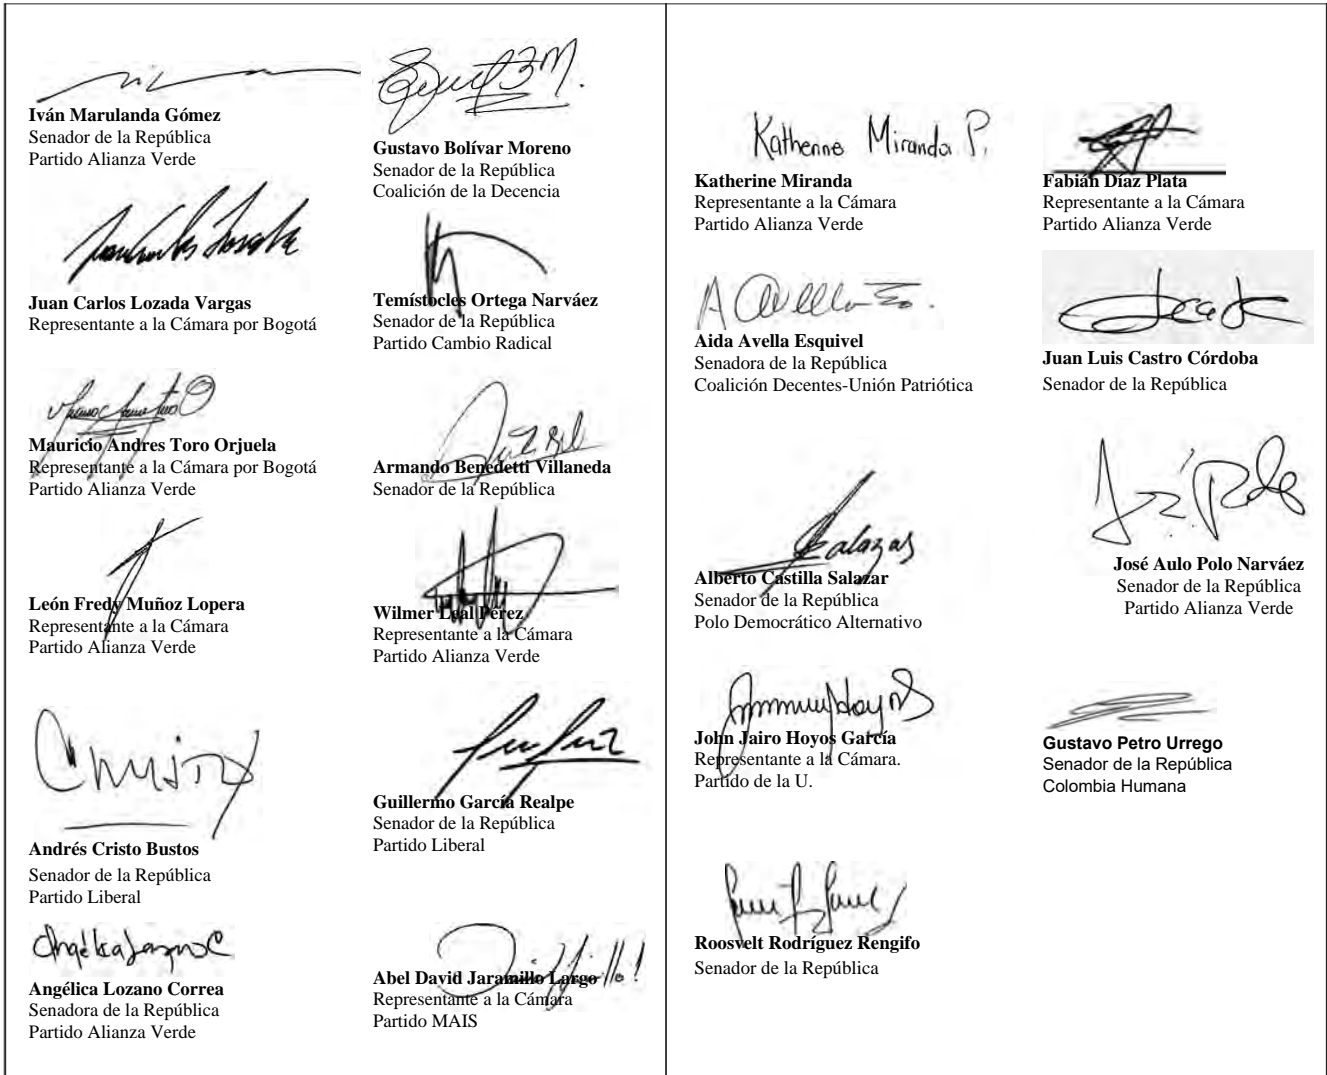 Iván Marulanda Gómez
Senador de la República
Partido Alianza Verde
Juan Carlos Lozada Vargas
Representante a la Cámara por Bogotá
Mauricio Andres Toro Orjuela
Representante a la Cámara por Bogotá
Partido Alianza Verde
León Fredy Muñoz Lopera
Representante a la Cámara
Partido Alianza Verde
Andrés Cristo Bustos
Senador de la República
Partido Liberal
Angélica Lozano C
Angélica Lozano Correa
Senadora de la República
Partido Alianza Verde
Gustavo Bolívar Moreno
Senador de la República
Coalición de la Decencia
Temístocles Ortega Narváez
Senador de la República
Partido Cambio Radical
Armando Benedetti Villaneda
Senador de la República
Wilmer Leal Pérez
Representante a la Cámara
Partido Alianza Verde
Guillermo García Realpe
Senador de la República
Partido Liberal
Abel David Jaramillo Largo
Representante a la Cámara
Partido MAIS
Katherine Miranda P.
Katherine Miranda
Representante a la Cámara
Partido Alianza Verde
Aida Avella Esquivel
Senadora de la República
Coalición Decentes-Unión Patriótica
Alberto Castilla Salazar
Senador de la República
Polo Democrático Alternativo
John Jairo Hoyos García
Representante a la Cámara.
Partido de la U.
Roosvelt Rodríguez Rengifo
Senador de la República
Fabián Díaz Plata
Representante a la Cámara
Partido Alianza Verde
Juan Luis Castro Córdoba
Senador de la República
José Aulo Polo Narváez
Senador de la República
Partido Alianza Verde
Gustavo Petro Urrego
Senador de la República
Colombia Humana